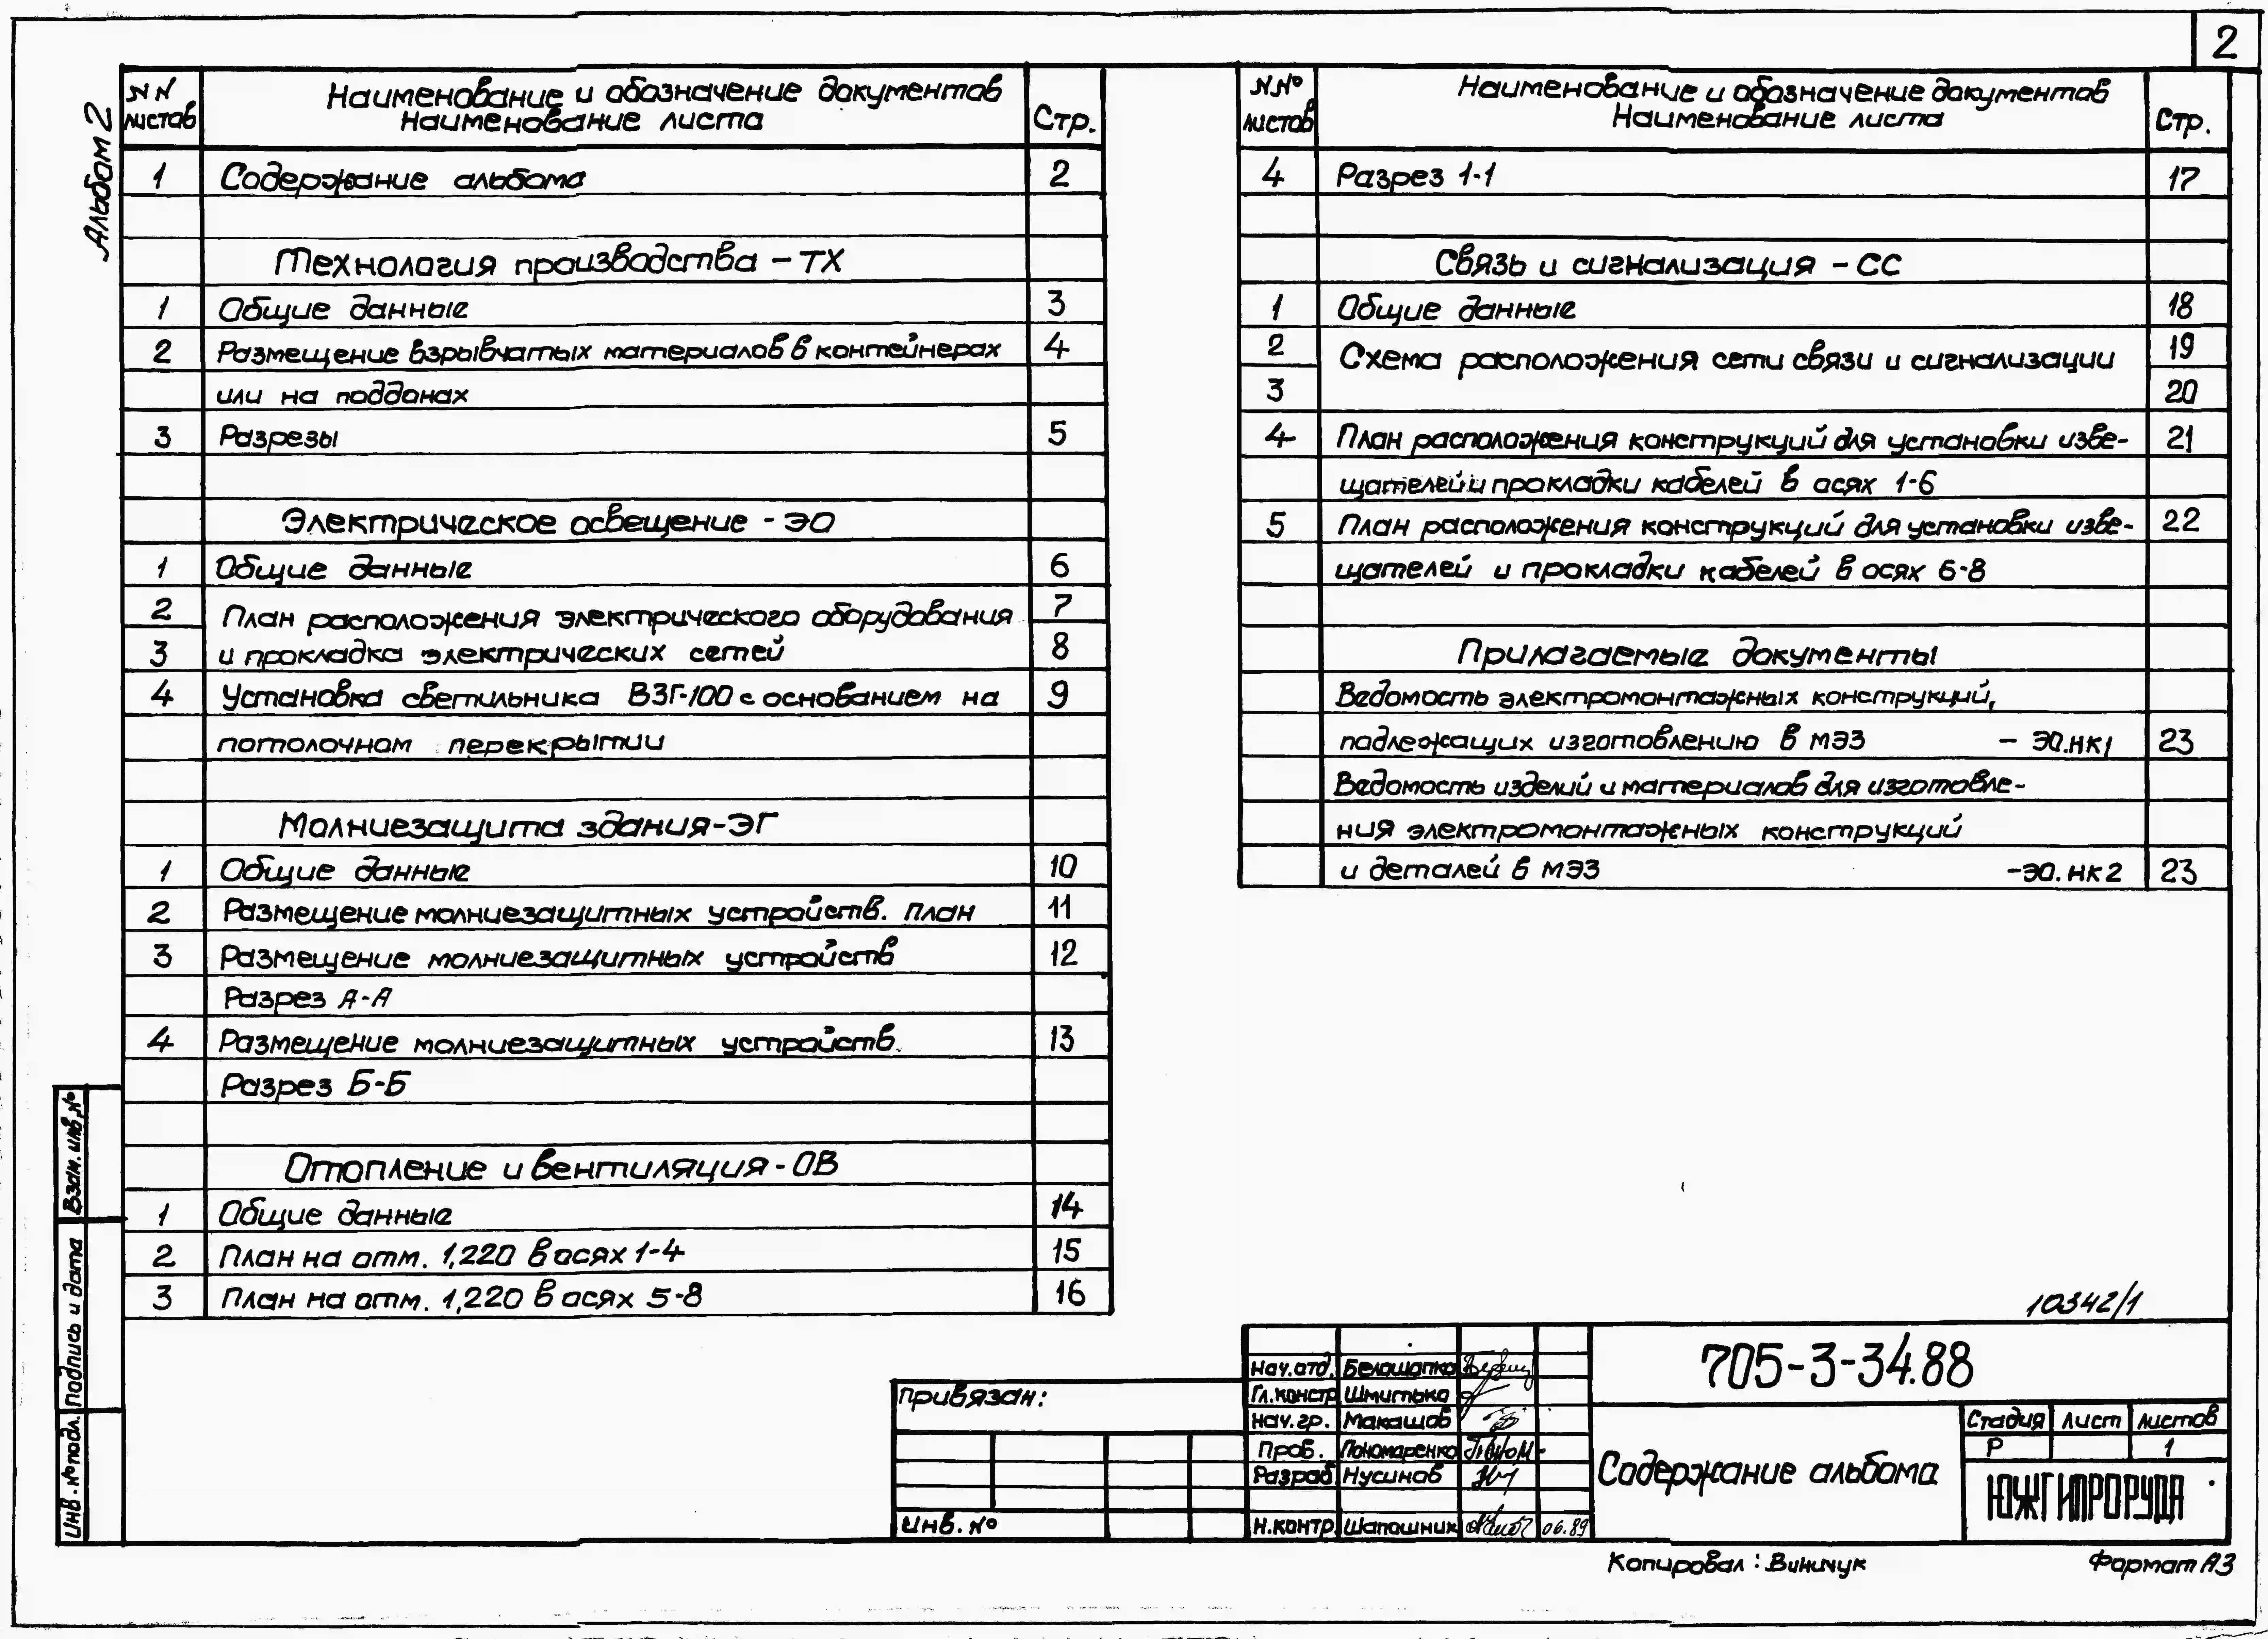 2
Альбом 2
NN листов Наименование и обозначение документов Наименование листа Стр.
1 Содержание альбома 2
Технология производства – ТХ
1 Общие данные 3
2 Размещение взрывчатых материалов в контейнерах 4
или на поддонах
3 Разрезы 5
Электрическое освещение - ЭО
1 Общие данные 6
2 План расположения электрического оборудования 7
3 и прокладка электрических сетей 8
4 Установка светильника ВЗГ-100 с основанием на 9
потолочном перекрытии
Молниезащита здания-ЭГ
1 Общие данные 10
2 Размещение молниезащитных устройств. План 11
3 Размещение молниезащитных устройств 12
Разрез А-А
4 Размещение молниезащитных устройств. 13
Разрез Б-Б
Отопление и вентиляция - ОВ
1 Общие данные 14
2 План на отм. 1,220 в осях 1-4 15
3 План на отм. 1,220 в осях 5-8 16
N№ листов Наименование и обозначение документов Наименование листа Стр.
4 Разрез 1-1 17
Связь и сигнализация – СС
1 Общие данные 18
2 Схема расположения сети связи и сигнализации 19
3 20
4 План расположения конструкций для установки изве- 21
щателей и прокладки кабелей в осях 1-6
5 План расположения конструкций для установки изве- 22
щателей и прокладки кабелей в осях 6-8
Прилагаемые документы
Ведомость электромонтажных конструкций,
подлежащих изготовлению в МЭЗ – ЭО.НК1 23
Ведомость изделий и материалов для изготовле-
ния электромонтажных конструкций
и деталей в МЭЗ -ЭО.НК2 23
10342/1
Взам. инв. №
Подпись и дата
Инв. № подл.
Привязан:
Инв. №
Нач.отд. Белошапко
Гл.констр Шмитько
Нач. гр. Макашов
Пров. Пономаренко
Разраб. Нусинов
Н.контр. Шапошник 06.89
705-3-34.88
Содержание альбома
Стадия Лист Листов
Р 1
ЮЖГИПРОРУДА
Копировал: Виничук
Формат А3